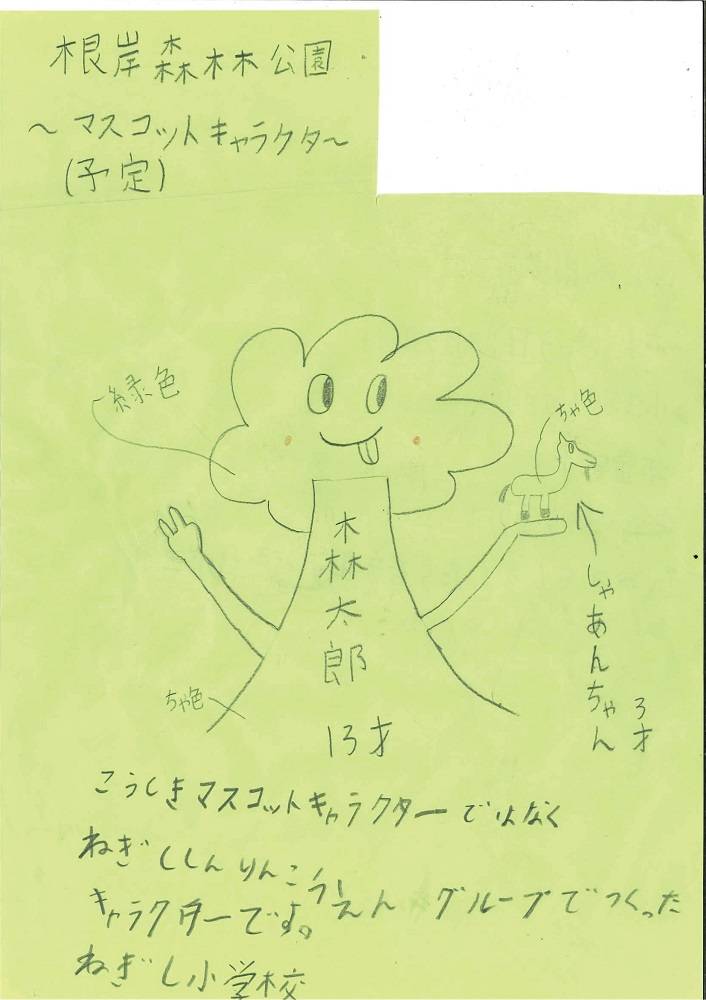 根岸森林公園
〜マスコットキャラクタ〜
(予定)
緑色
ちゃ色
森太郎
13才
しゃあんちゃん
3才
ちゃ色
こうしきマスコットキャラクターではなく
ねぎししんりんこうえん グループでつくった
キャラクターです。
ねぎし小学校